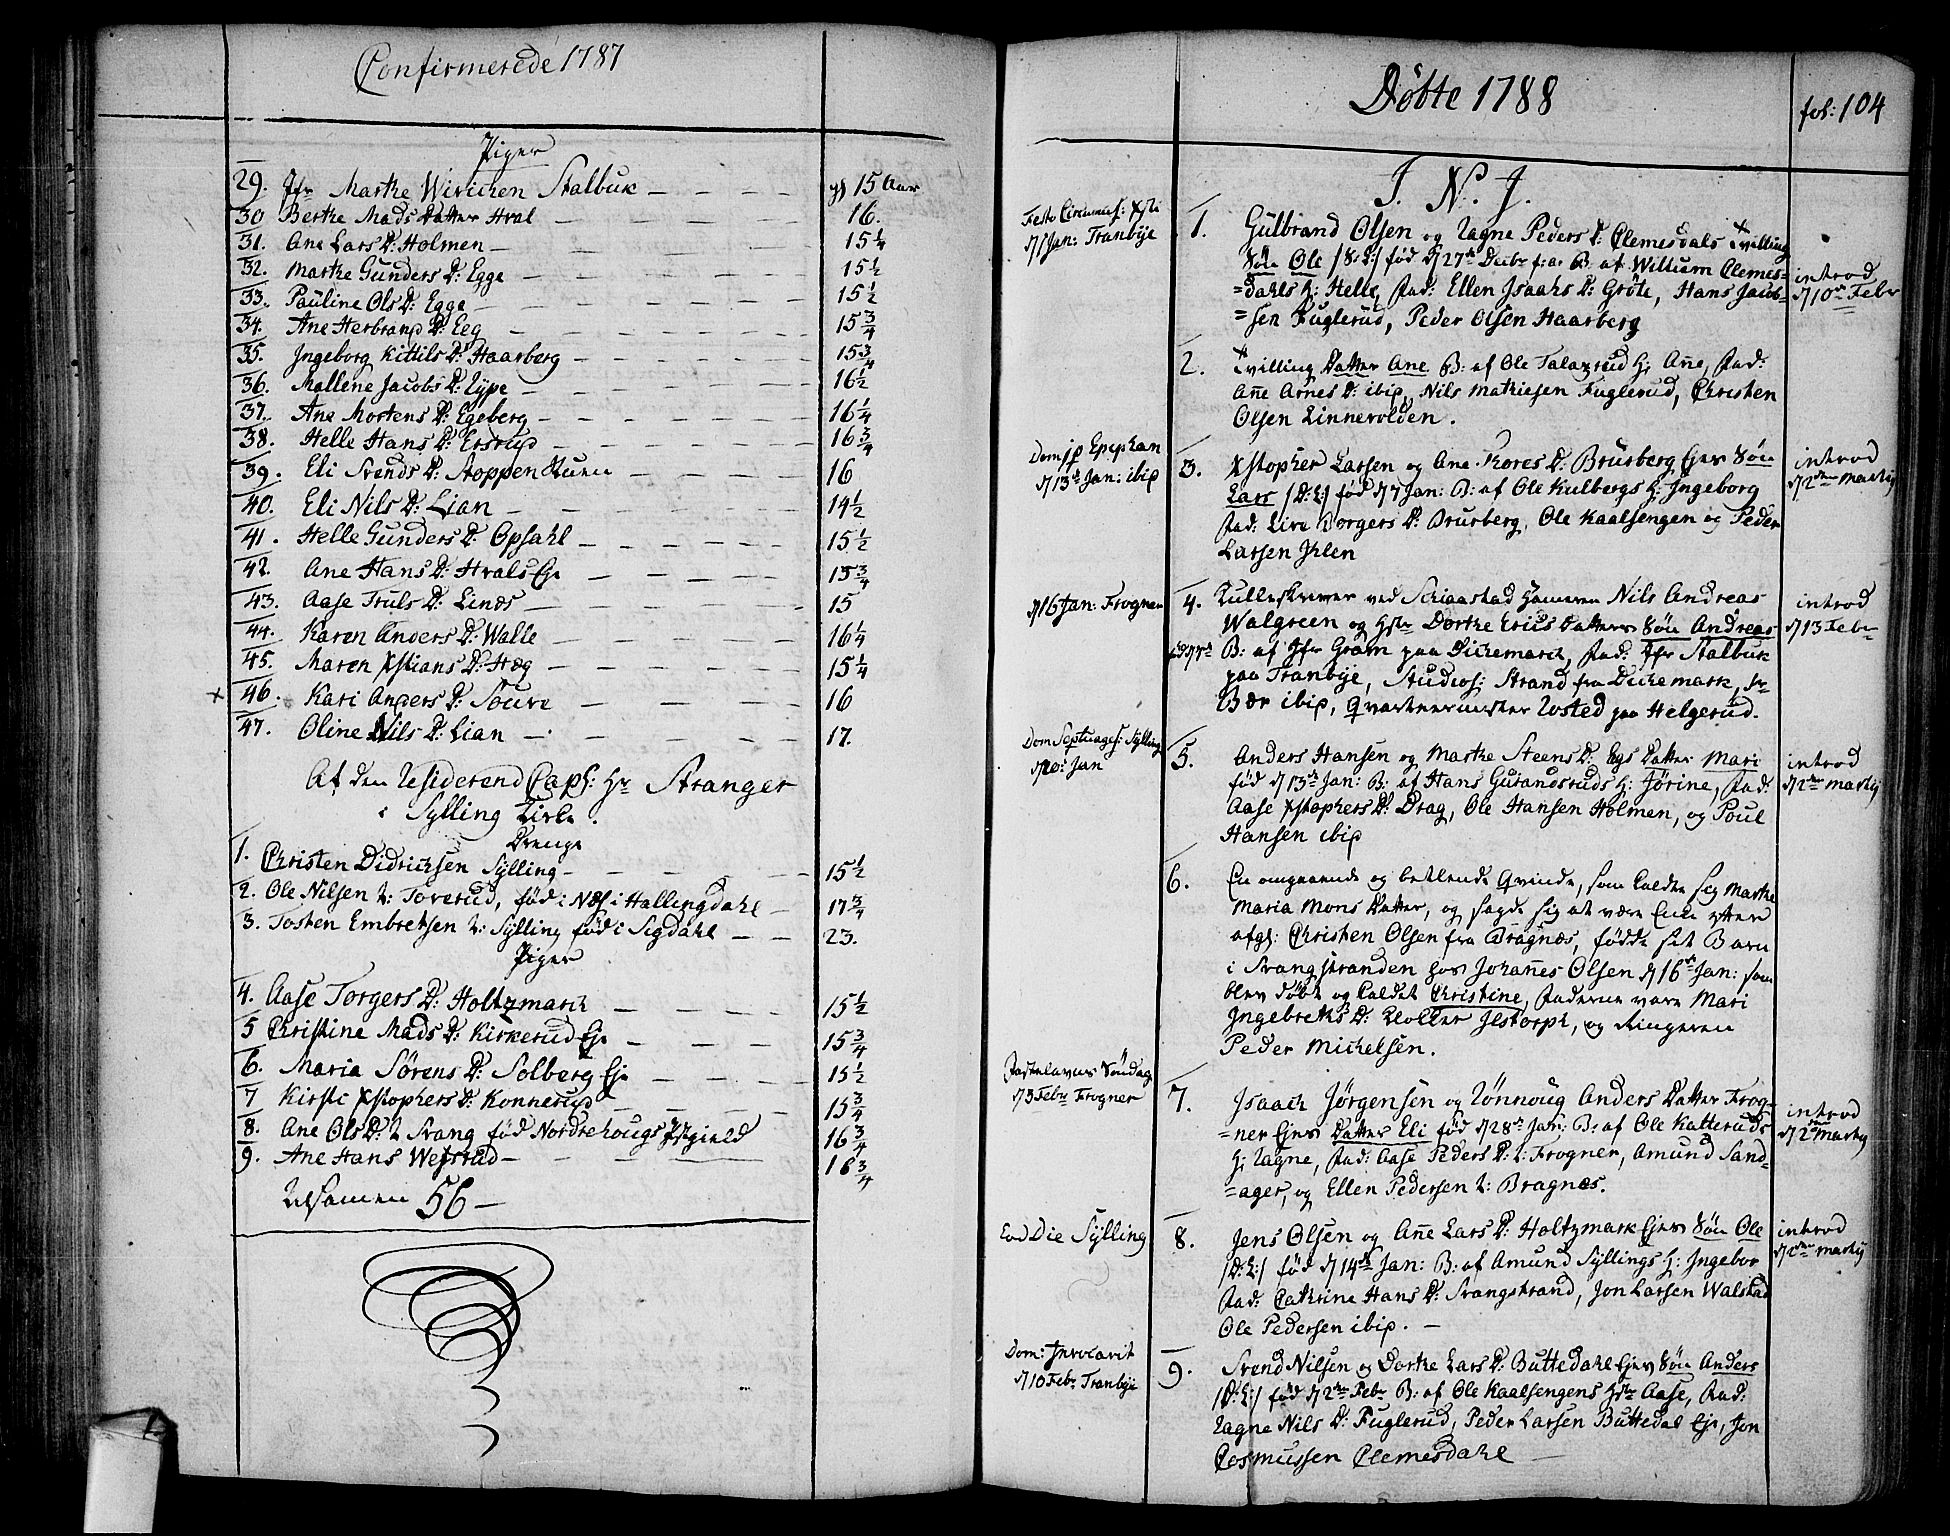 Confirmerede 1787
Piger
29. Jfr Marthe Wirichen Stalbuk — gl 15 Aar
30 Berthe Mads Datter Hval — 16.
31. Ane Lars D: Holmen — 15 1/4
32. Marthe Gunders D: Egge — 15 1/2
33. Pauline Ols D: Egge — 15 1/2
34. Ane Herbrand D: Eeg — 15 3/4
35. Ingeborg Kittils D: Haarberg — 15 3/4
36. Mallene Jacobs D: Lype — 16 1/2
37. Ane Mortens D: Egeberg — 16 1/4
38. Helle Hans D: Ersrud — 16 3/4
39. Eli Svends D: Stoppen Ruen — 16
40. Eli Nils D: Lian — 14 1/2
41. Helle Gunders D: Opsahl — 15 1/2
42. Ane Hans D: Hvals Eje — 15 3/4
43. Aase Truls D: Linæs — 15
44. Karen Anders D: Walle — 16 1/4
45. Maren Xstians D: Hæg — 15 1/4
+ 46. Kari Anders D: Toure — 16
47. Oline Nils D: Lian — 17.
Af den Residerend Capl: Hr Stranger
i Sylling Kirke.
Drenge
1. Christen Didrichsen Sylling — 15 1/2
2. Ole Nilsen t: Toverud, fød i Næs i Hallingdahl — 17 3/4
3. Tosten Embretsen t: Sylling fød i Sigdahl — 23.
Piger
4. Aase Torgers D: Holtzmarch — 15 1/2
5 Christine Mads D: Kirkerud Eje — 15 3/4
6. Maria Sørens D: Solberg Eje — 15 1/2
7 Kirsti Xstophers D: Konnerud — 15 3/4
8. Ane Ols D: t Svang fød Nordrehougs Pstgield 16 3/4
9. Ane Hans Wefstrud — 16 3/4
Tilsamen 56 —
Døbte 1788
fol: 104
I. N. J.
Festo Circumcis: Xsti
d 1 Jan: Tranbye
1. Gulbrand Olsen og Ragne Peders D: Clemesdals Tvilling
Søn Ole /S:D:/ fød d 27de Decbr f: a: B: af Willium Clemes-
=dahls H: Helle, Fad: Ellen Isaahs D: Grøte, Hans Jacob-
=sen Fuglerud, Peder Olsen Haarberg
introd
d 10de Febr
2. Tvilling Datter Ane B: af Ole Talazrud H: Ane, Fad:
Ane Arnes D: ibid, Nils Mathiesen Fuglerud, Christen
Olsen Linnevolden.
Dom j p Epiphan
d 13de Jan: ibid
3. Xstopher Larsen og Ane Thores D: Brusberg Ejes Søn
Lars /D:L:/ fød d 7 Jan: B: af Ole Kulbergs H: Ingeborg
Fad: Live Borgers D: Brusberg, Ole Kaalsengen og Peder
Larsen Ihlen
introd
d 2den Martij
d 16 Jan: Frogner
4. Rulleskriver ved Schiaastad Hameren Nils Andreas
Walgreen og Hstr Dorthe Erics Datters Søn Andreas
B: af Jfr Gram paa Dichemarch, Fad: Jfr Stalbuk
paa Tranbye, Studios: Strand fra Dichemark, Sr
Bær ibid, Qvarteermester Rosted paa Helgerud.
introd
d 13 Febr
Dom Septuages: Sylling
d 20: Jan
5. Anders Hansen og Marthe Steens D: Egs Datter Mari
fød d 13de Jan: B: af Hans Gurandsruds H: Jørine, Fad:
Aase Xstophers D: Drag, Ole Hansen Holmen, og Poul
Hansen ibid
introd
d 2den Martij
6. En omgaaende og betlende Qvinde, som kaldte seg Marthe
Maria Mons Datter, og sagde sig at være Enke efter
afgl: Christen Olsen fra Bragnæs, fødde sit Barn
i Svangstranden hos Johannes Olsen d 16de Jan: som
blev døbt og kaldet Christine, Fadderne vare Mari
Ingebreths D: Kloller Ilstorph, og Ringeren
Peder Michelsen.
Fastelavns Søndag
d 3 Febr Frogner
7. Isaach Jørgensen og Rønnoug Anders Datter Frog-
=ner Ejes Datter Eli fød d 28de Jan: B: af Ole Katteruds
H: Ragne, Fad: Aase Peders D: t: Frogner, Amund Sand-
=ager, og Ellen Pedersen t: Bragnæs.
introd
d 2den Martij
Eod Die Sylling
8. Jens Olsen og Ane Lars D: Holtzmark Ejes Søn Ole
/D:L:/ fød d 14de Jan: B: af Amund Syllings H: Ingebor
Fad: Cathrine Hans D: Svangstrand, Jon Larsen Walstad
Ole Pedersen ibid. —
introd
d 2den Martij
Dom: Invocavit
d 10 Febr Tranbye
9. Svend Nilsen og Dorthe Lars D: Buttedahl Ejes Søn Anders
/D:L:/ fød d 2den Febr B: af Ole Kaalsengens Hstr Aase, Fad:
Ragne Nils D: Fuglerud, Peder Larsen Buttedal Eje, Jon
Rosmussen Clemesdahl —